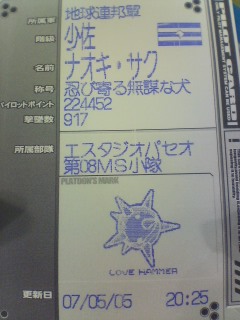 所属軍 地球連邦軍
階級 少佐
名前 ナオキ・サク
称号 忍び寄る無謀な犬
パイロットポイント 224452
撃墜数 917
所属部隊 エスタジオパセオ
第08MS小隊
PLATOON'S MARK
LOVE HAMMER
更新日 07/05/05 20:25